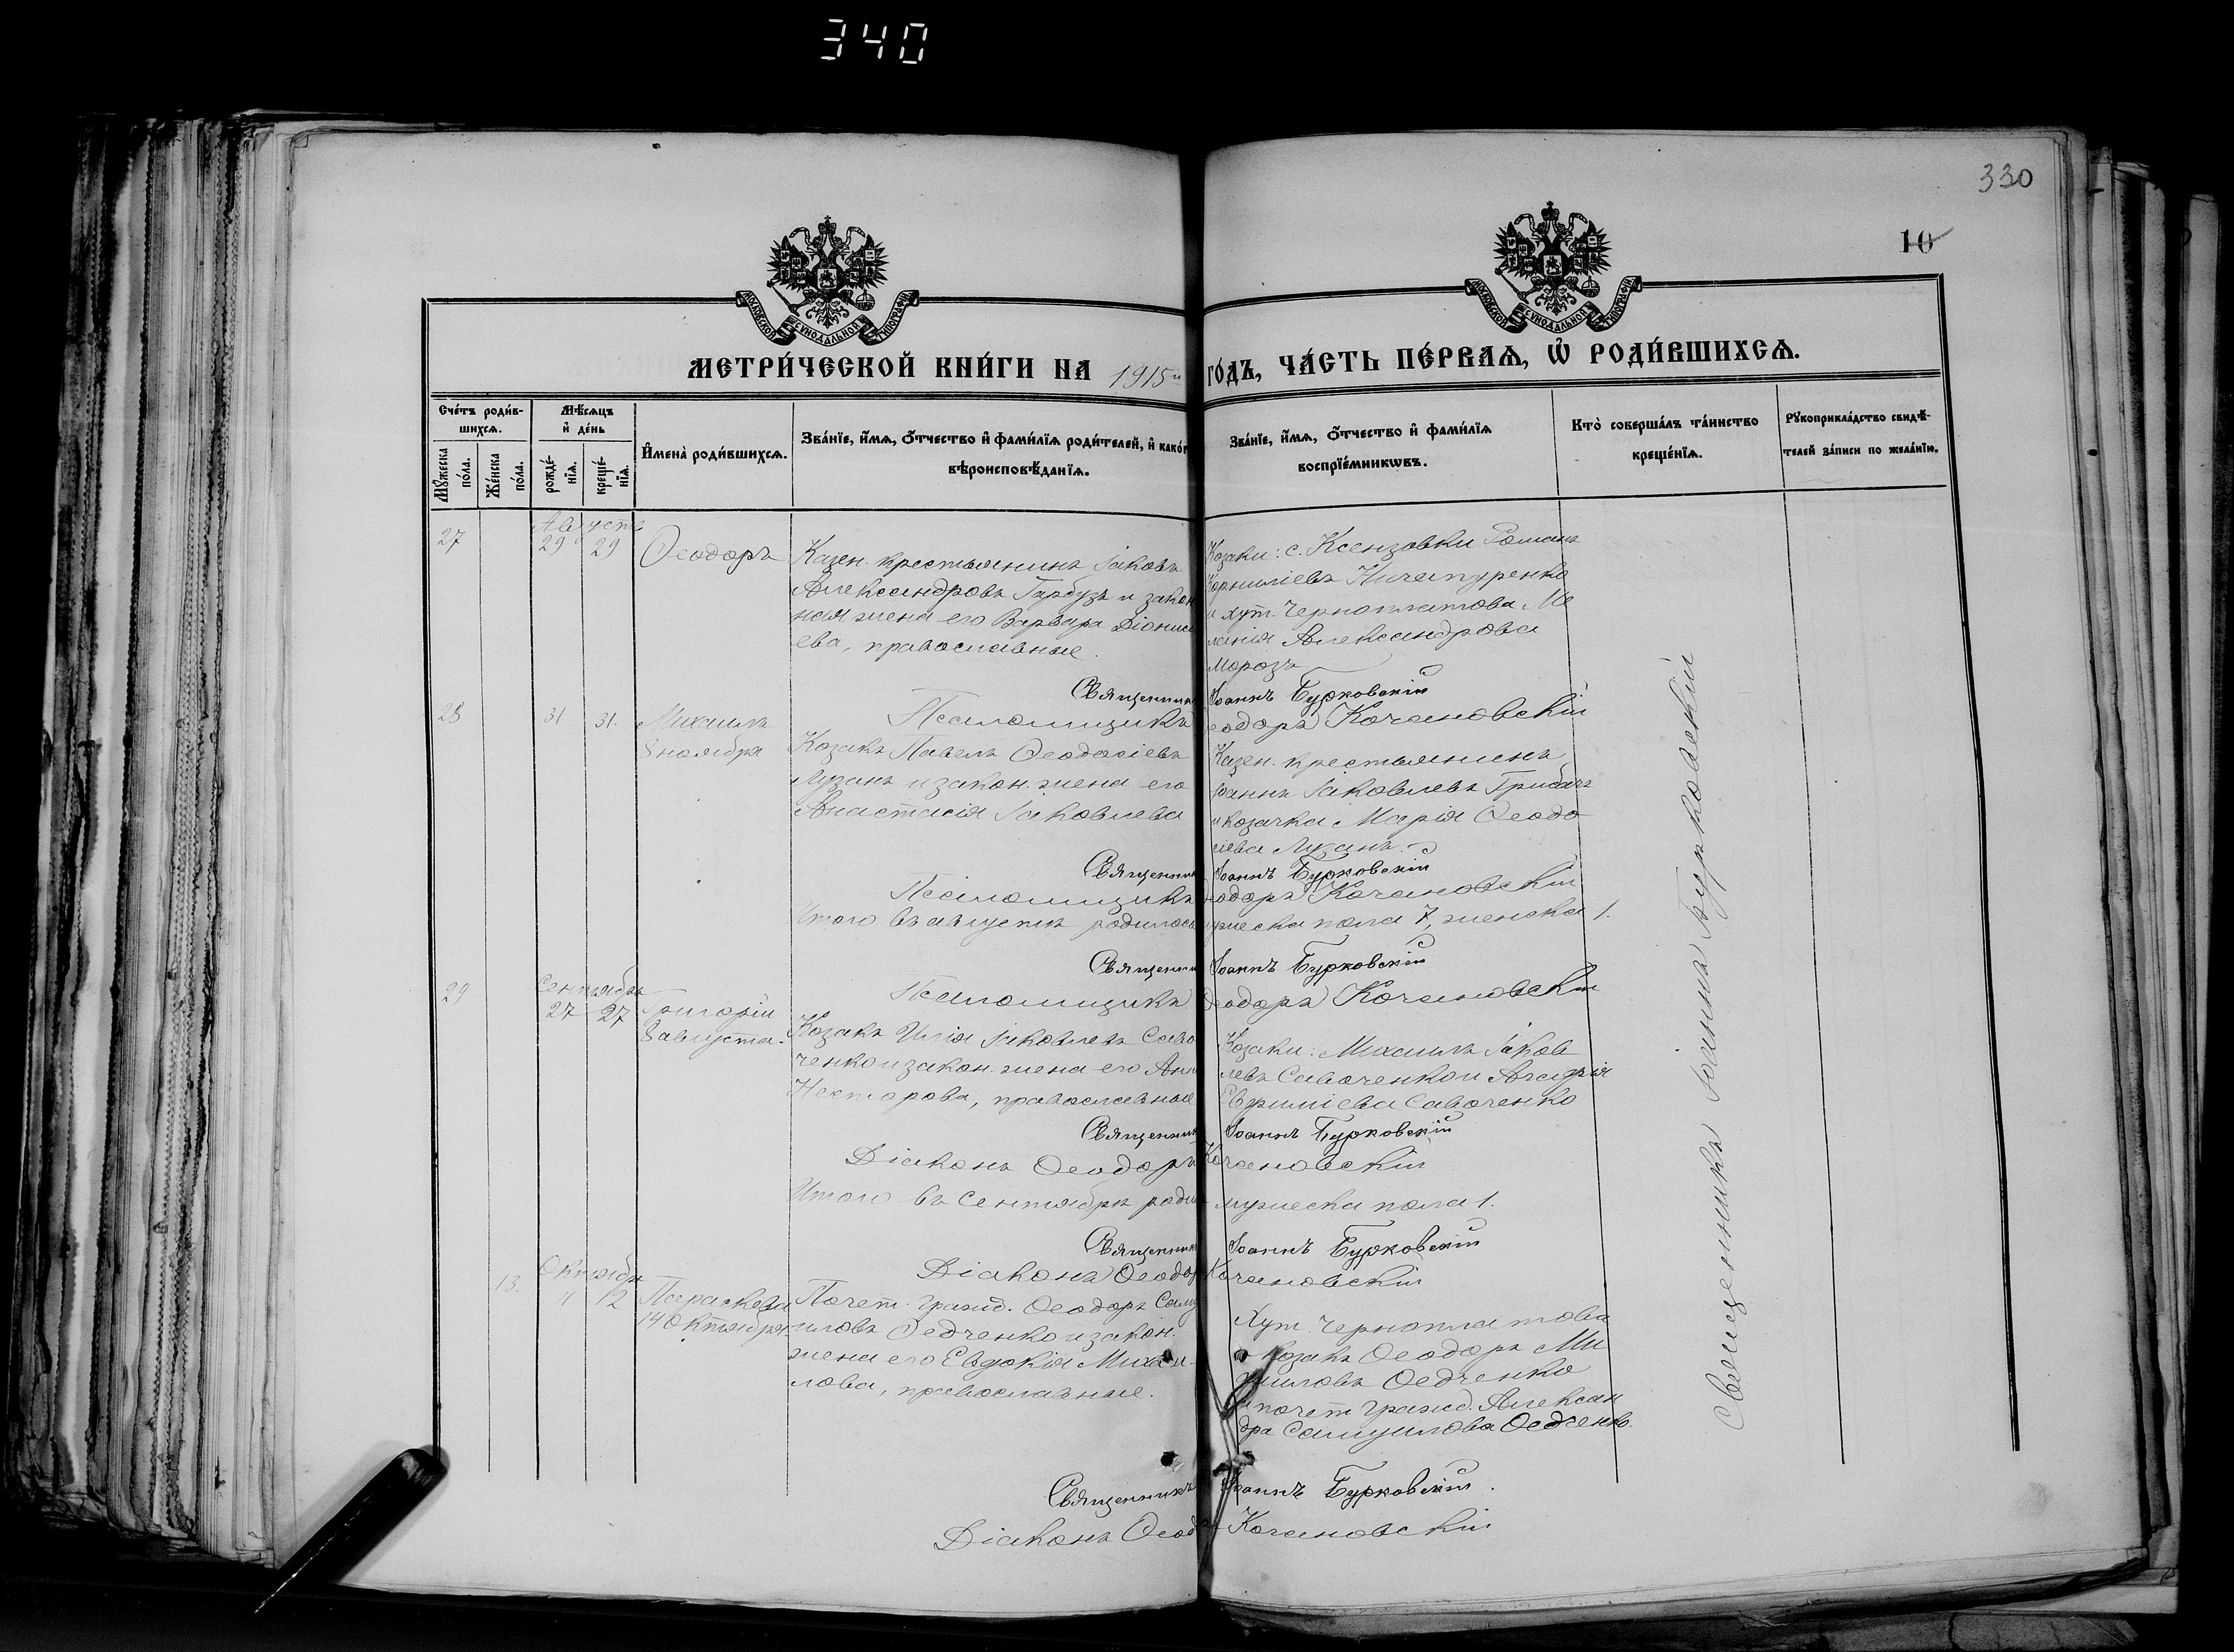 340
330
10
МОСКОВСКОЙ СѴНОДАЛЬНОЙ ТИПОГРАФІИ
МОСКОВСКОЙ СѴНОДАЛЬНОЙ ТИПОГРАФІИ
МЕТРИ́ЧЕСКОЙ КНИ́ГИ НА 1915й ГО́ДЪ, ЧА́СТЬ ПЕ́РВАѦ, Ѡ҆ РОДИ́ВШИХСѦ.
Сче́тъ роди́в-
шихсѧ.
Мꙋ́жеска по́ла.
Же́нска по́ла.
Мѣ́сѧцъ
и҆ де́нь
рожде́-нїѧ.
креще́-нїѧ.
И҆мена̀ роди́вшихсѧ.
Зва́нїе, и҆́мѧ, ѻ҆́тчество и҆ фами́лїѧ роди́телей, и҆ како́г
вѣроисповѣ́данїѧ.
Зва́нїе, и҆́мѧ, ѻ҆́тчество и҆ фами́лїѧ
воспрїе́мникѡвъ.
Кто̀ соверша́лъ та́инство
креще́нїѧ.
Рꙋкоприкла́дство свидѣ́-
телей за́писи по жела́нїю.
27
Августъ
29 29
Ѳеодоръ
Казен. крестьянинъ Іаковъ
Александровъ Гарбузъ и закон
ная жена его Варвара Діониси
ева, православные.
Козаки: с. Ксензовки Романъ
Корниліевъ Ничипуренко
и хут. Черноплатова Ме
ланія Александрова
Морозъ
Священникъ Іоаннъ Бурковскій
Псаломщикъ Ѳеодоръ Кочановскій
28
31 31.
Михаилъ
8 ноября
Козакъ Павелъ Ѳеодосіевъ
Лузанъ и закон. жена его
Анастасія Іаковлева
Казен. крестьянинъ
Іоаннъ Іаковлевъ Грибачъ
и козачка Марія Ѳеодо
сіева Лузанъ.
Священникъ Іоаннъ Бурковскій
Псаломщикъ Ѳеодоръ Кочановскій
Итого въ августѣ родилось мужеска пола 7, женска 1.
Священникъ Іоаннъ Бурковскій
Псаломщикъ Ѳеодоръ Кочановскій
29
Сентябрь
27 27
Григорій
8 августа.
Козакъ Илія Іаковлевъ Саво
ченко и закон. жена его Анна
Несторова, православные
Козаки: Михаилъ Іаков
левъ Савоченко и Агафія
Савоченко
Священникъ Іоаннъ Бурковскій
Діаконъ Ѳеодоръ Кочановскій
Итого въ Сентябрѣ роди мужеска пола 1.
Священникъ Іоаннъ Бурковскій
Діаконъ Ѳеодоръ Кочановскій
13.
Октябрь
11 12
Параскева
14 октября
Почет. гражд. Ѳеодоръ Саму
иловъ Ѳедченко и закон.
жена его Евдокія Михаи-
лова, православные.
Хут. Черноплатова
козакъ Ѳеодоръ Ми
хаиловъ Ѳедченко
и почет. гражд. Алексан
дра Самуилова Ѳедченко.
Священникъ Іоаннъ Бурковскій.
Діаконъ Ѳеодоръ Кочановскій
Священникъ Іоаннъ Бурковскій